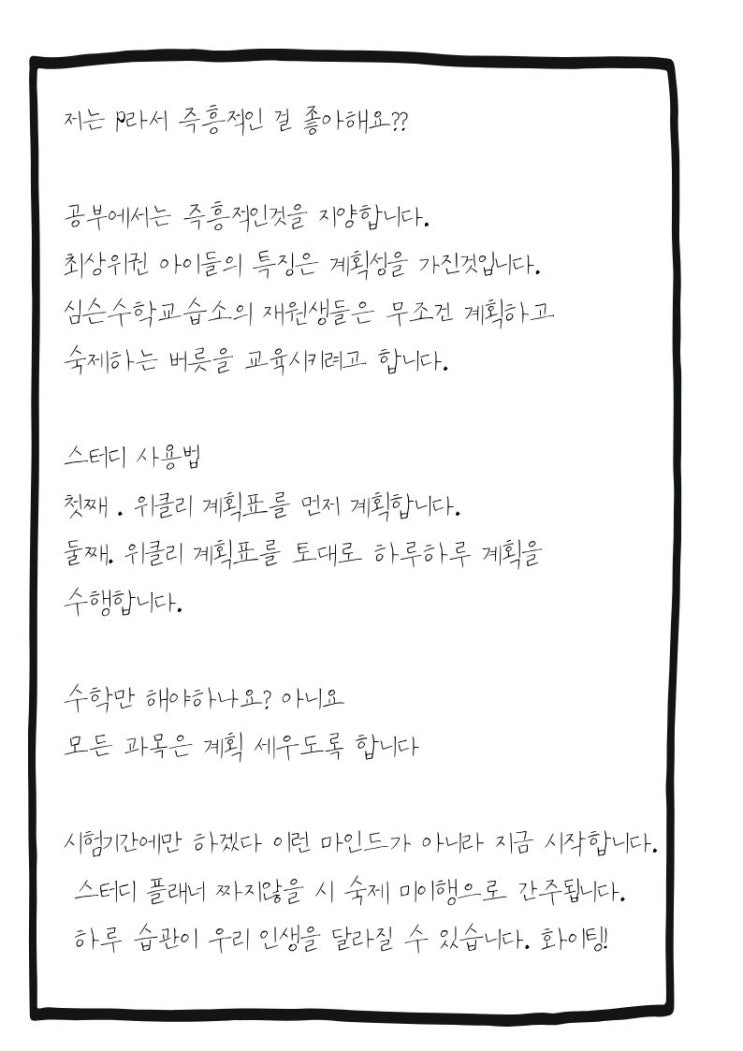 저는 p라서 즉흥적인 걸 좋아해요??
공부에서는 즉흥적인것을 지양합니다.
최상위권 아이들의 특징은 계획성을 가진것입니다.
심슨수학교습소의 재원생들은 무조건 계획하고
숙제하는 버릇을 교육시키려고 합니다.
스터디 사용법
첫째 . 위클리 계획표를 먼저 계획합니다.
둘째. 위클리 계획표를 토대로 하루하루 계획을
수행합니다.
수학만 해야하나요? 아니요
모든 과목은 계획 세우도록 합니다
시험기간에만 하겠다 이런 마인드가 아니라 지금 시작합니다.
스터디 플래너 짜지않을 시 숙제 미이행으로 간주됩니다.
하루 습관이 우리 인생을 달라질 수 있습니다. 화이팅!